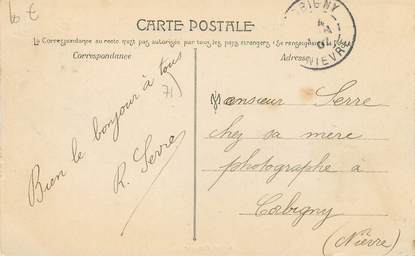 CARTE POSTALE
La Correspondance au recto n'est pas autorisée par tous les pays étrangers (Se renseigner à la
Correspondance
Adresse
Bien le bonjour à tous
R. Serre
71
Monsieur Serre
chez sa mère
photographe à
Corbigny
(Nièvre)
NIEVRE